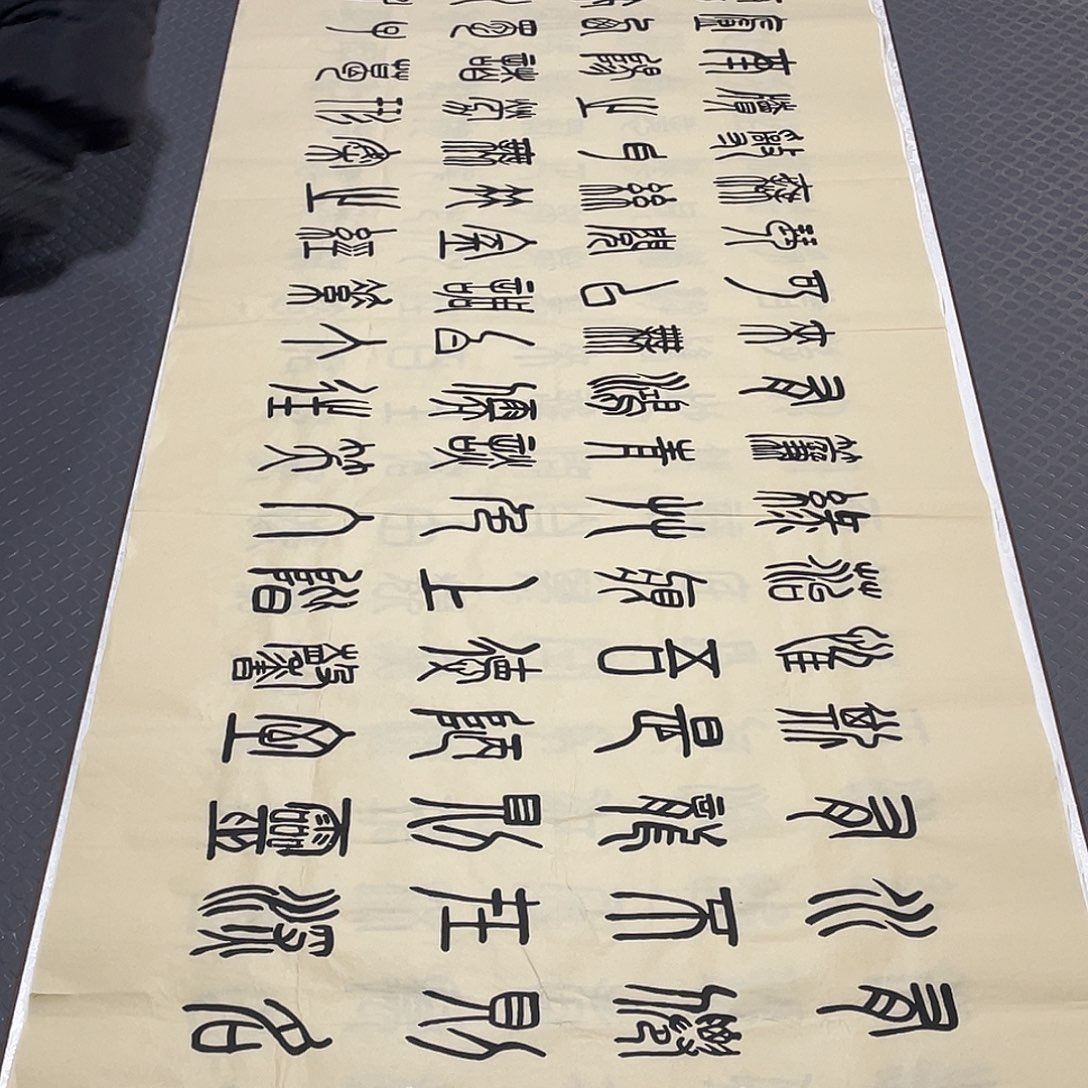 有僊則名
水不在深
有龍則靈
斯是陋室
惟吾德馨
苔痕上階
綠艸色入
簾青談笑
有鴻儒往
來無白丁
可以調素
琴閱金經
無絲竹之
亂耳無案
牘之勞形
南陽諸葛
廬西蜀子